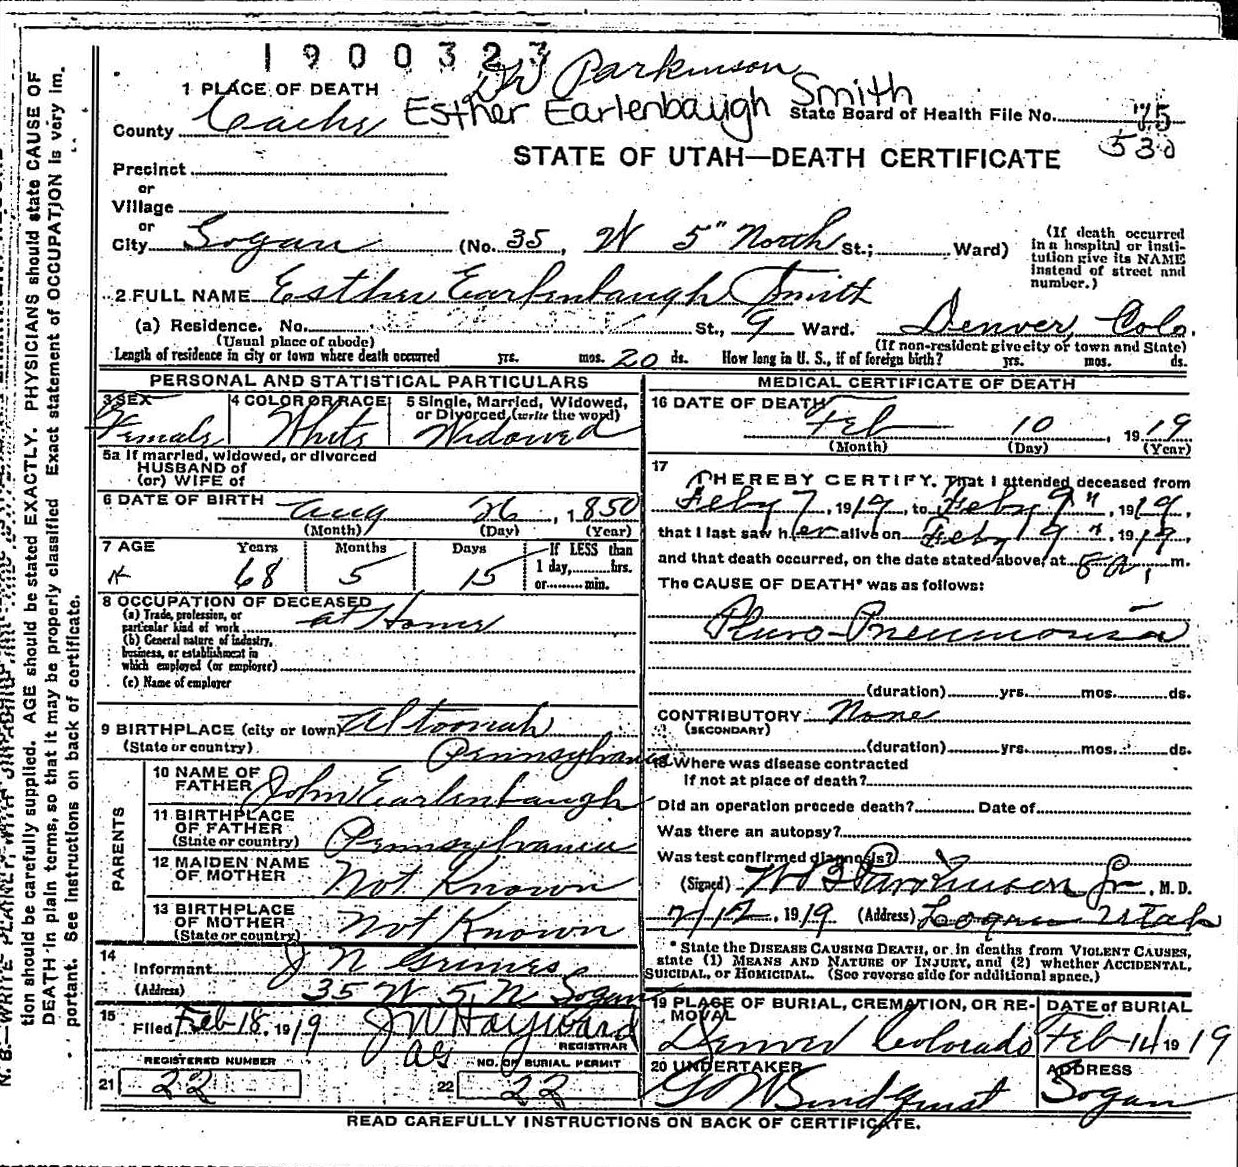 1900323
Dr Parkinson
1 PLACE OF DEATH
Esther Earlenbaugh Smith
County Cache
State Board of Health File No. 75
530
STATE OF UTAH—DEATH CERTIFICATE
Precinct
or
Village
or
City Logan (No. 35, W 5" North St.; Ward)
(If death occurred in a hospital or insti-
tution give its NAME
instead of street and
number.)
2 FULL NAME Esther Earlenbaugh Smith
(a) Residence. No. St., 9 Ward. Denver, Colo.
(Usual place of abode) (If non-resident give city or town and State)
Length of residence in city or town where death occurred yrs. mos. 20 ds. How long in U. S., if of foreign birth? yrs. mos. ds.
PERSONAL AND STATISTICAL PARTICULARS
3 SEX 4 COLOR OR RACE 5 Single, Married, Widowed,
or Divorced, (write the word)
Female White Widowed
5a If married, widowed, or divorced
HUSBAND of
(or) WIFE of
6 DATE OF BIRTH Aug 26, 1850
(Month) (Day) (Year)
7 AGE Years Months Days If LESS than
1 day, hrs.
or min.
68 5 15
8 OCCUPATION OF DECEASED
(a) Trade, profession, or
particular kind of work at Home
(b) General nature of industry,
business, or establishment in
which employed (or employer)
(c) Name of employer
9 BIRTHPLACE (city or town) Altoonah
(State or country) Pennsylvania
PARENTS
10 NAME OF
FATHER John Earlenbaugh
11 BIRTHPLACE
OF FATHER
(State or country) Pennsylvania
12 MAIDEN NAME
OF MOTHER Not Known
13 BIRTHPLACE
OF MOTHER
(State or country) Not Known
14
Informant J N Grimes
(Address) 35 W 5 N Logan
15
Filed Feb 18, 1919 J W Hayward
REGISTRAR
REGISTERED NUMBER NO. OF BURIAL PERMIT
21 22 22 22
MEDICAL CERTIFICATE OF DEATH
16 DATE OF DEATH
Feb 10, 1919
(Month) (Day) (Year)
17
I HEREBY CERTIFY. That I attended deceased from
Feby 7, 1919, to Feby 9", 1919,
that I last saw her alive on Feby 9", 1919,
and that death occurred, on the date stated above, at 8 a. m.
The CAUSE OF DEATH* was as follows:
Pluro-Pneumonia
(duration) yrs. mos. ds.
CONTRIBUTORY None
(SECONDARY)
(duration) yrs. mos. ds.
18 Where was disease contracted
If not at place of death?
Did an operation procede death? Date of
Was there an autopsy?
Was test confirmed diagnosis?
(Signed) W B Parkinson Jr, M. D.
2/12, 1919 (Address) Logan Utah
*State the DISEASE CAUSING DEATH, or, in deaths from VIOLENT CAUSES,
state (1) MEANS AND NATURE OF INJURY, and (2) whether ACCIDENTAL,
SUICIDAL, or HOMICIDAL. (See reverse side for additional space.)
19 PLACE OF BURIAL, CREMATION, OR RE-
MOVAL DATE OF BURIAL
Denver Colorado Feb 14 1919
20 UNDERTAKER ADDRESS
G W Lindquist Logan
READ CAREFULLY INSTRUCTIONS ON BACK OF CERTIFICATE.
tion should be carefully supplied. AGE should be stated EXACTLY. PHYSICIANS should state CAUSE OF
DEATH in plain terms, so that it may be properly classified Exact statement of OCCUPATION is very im.
portant. See instructions on back of certificate.